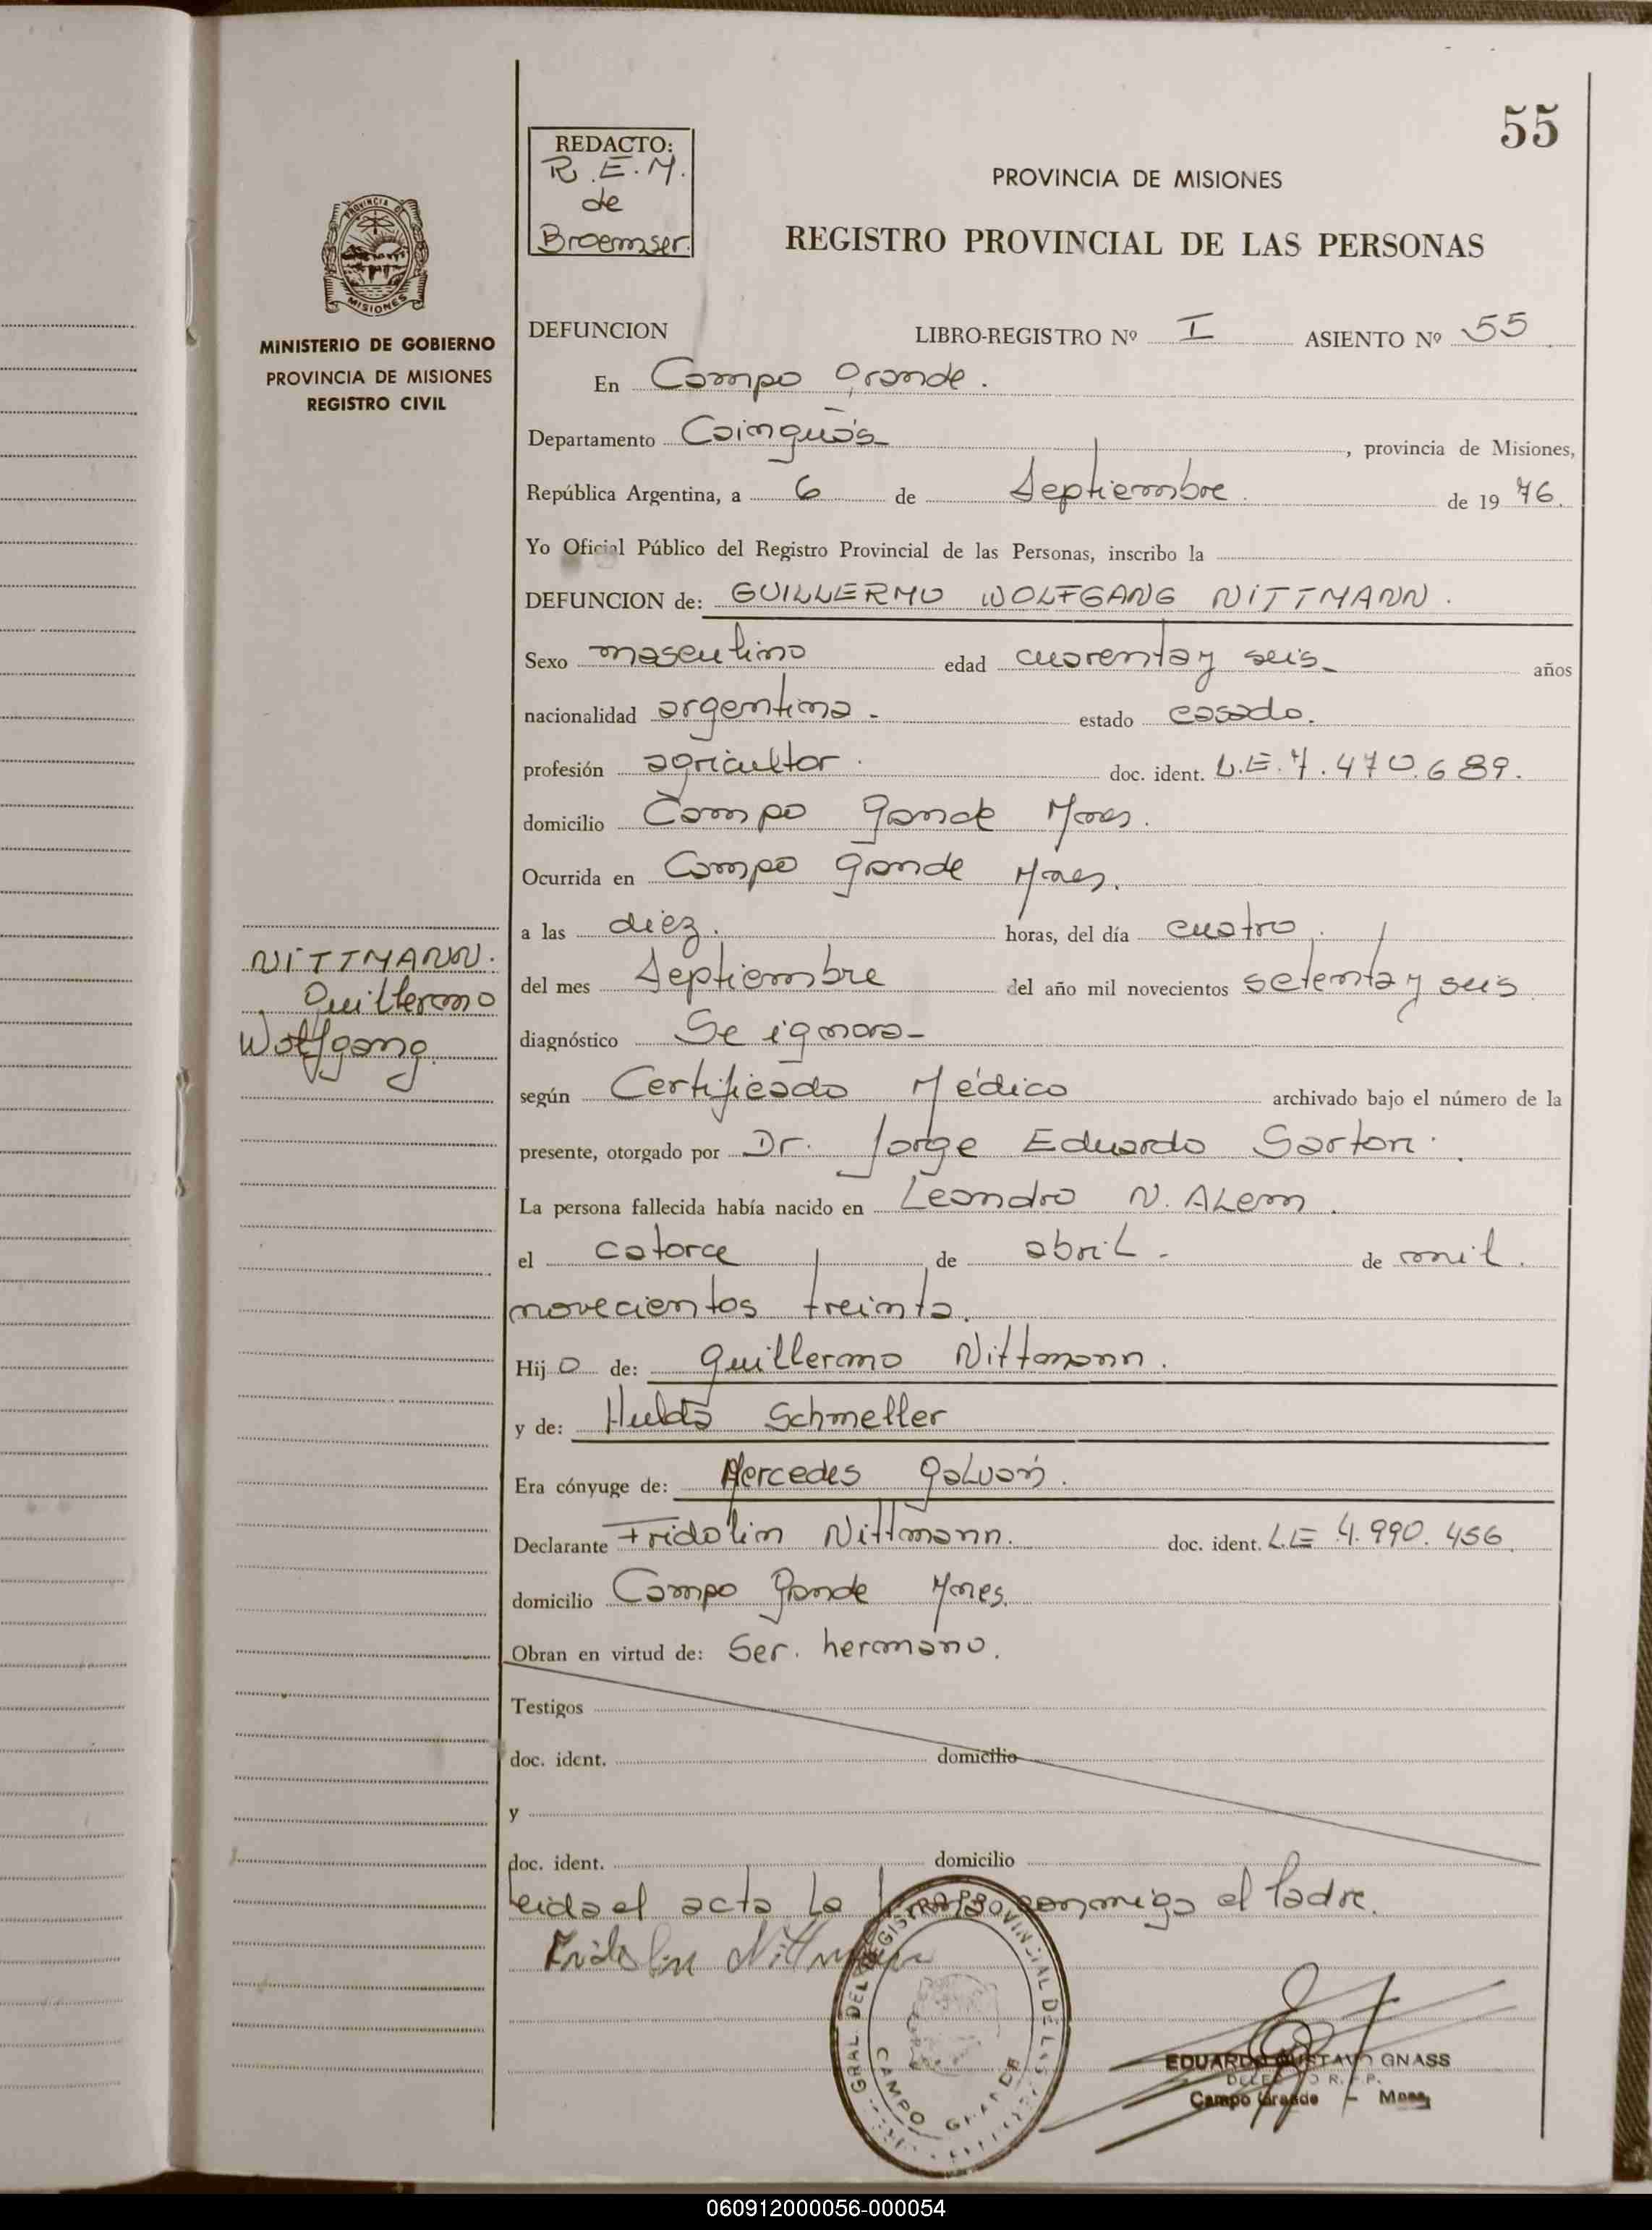 55
REDACTO:
R.E.M.
de
Broemser.
PROVINCIA DE MISIONES
REGISTRO PROVINCIAL DE LAS PERSONAS
PROVINCIA DE
MISIONES
MINISTERIO DE GOBIERNO
PROVINCIA DE MISIONES
REGISTRO CIVIL
DEFUNCION LIBRO-REGISTRO Nº I ASIENTO Nº 55
En Campo Grande.
Departamento Cainguás , provincia de Misiones,
República Argentina, a 6 de Septiembre. de 1976.
Yo Oficial Público del Registro Provincial de las Personas, inscribo la
DEFUNCION de: GUILLERMO WOLFGANG NITTMANN.
Sexo masculino edad cuarenta y seis años
nacionalidad argentina. estado casado.
profesión agricultor. doc. ident. L.E. 7.470.689.
domicilio Campo Gande Mnes.
Ocurrida en Campo Gande Mnes.
a las diez. horas, del día cuatro.
del mes Septiembre del año mil novecientos setenta y seis
diagnóstico Se ignora
según Certificado Médico archivado bajo el número de la
presente, otorgado por Dr. Jorge Eduardo Sartori.
La persona fallecida había nacido en Leandro N. ALem.
el catorce de abril. de mil.
novecientos treinta.
Hijo de: Guillermo Nittmann.
y de: Hulda Schmeller
Era cónyuge de: Mercedes Galván.
Declarante Fridolin Nittmann. doc. ident. L.E 4.990.456.
domicilio Campo Gande Mnes.
Obran en virtud de: Ser. hermano.
Testigos
doc. ident. domicilio
y
doc. ident. domicilio
Leida el acta la conmigo el Padre.
Fridolin Nittmann
NITTMANN.
Guillermo
Wolfgang.
GRAL. DEL REGISTRO PROVINCIAL DE LAS
CAMPO GRANDE
EDUARDO GUSTAVO GNASS
Campo Grande - Mnes.
060912000056-000054